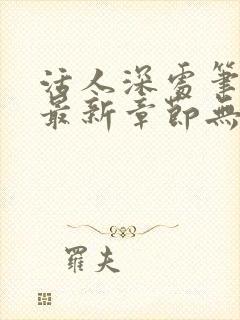 活人深處筆
最新章節無
羅夫